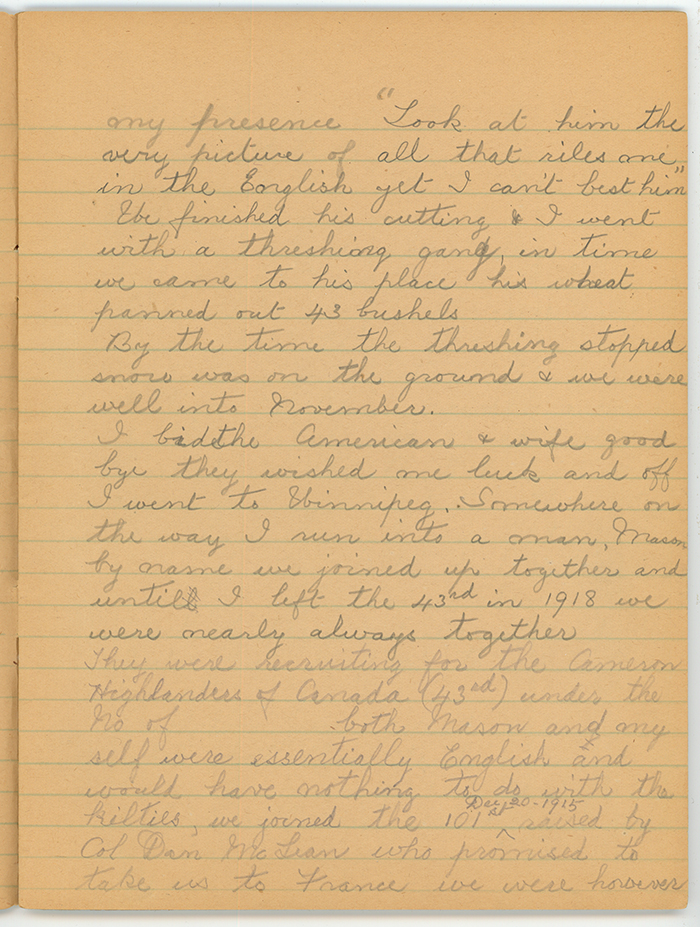 my presence "Look at him the
very picture of all that riles me,
in the English yet I can't best him"
We finished his cutting & I went
with a threshing gang, in time
we came to his place his wheat
panned out 43 bushels
By the time the threshing stopped
snow was on the ground & we were
well into November.
I bid the American & wife good
bye they wished me luck and off
I went to Winnipeg. Somewhere on
the way I run into a man, Mason
by name we joined up together and
until I left the 43rd in 1918 we
were nearly always together
They were recruiting for the Cameron
Highlanders of Canada (43rd) under the
No of both Mason and my
self were essentially English and
would have nothing to do with the
Kilties, we joined the 101st ^ raised by
Dec 20-1915
Col Dan McLean who promised to
take us to France we were however